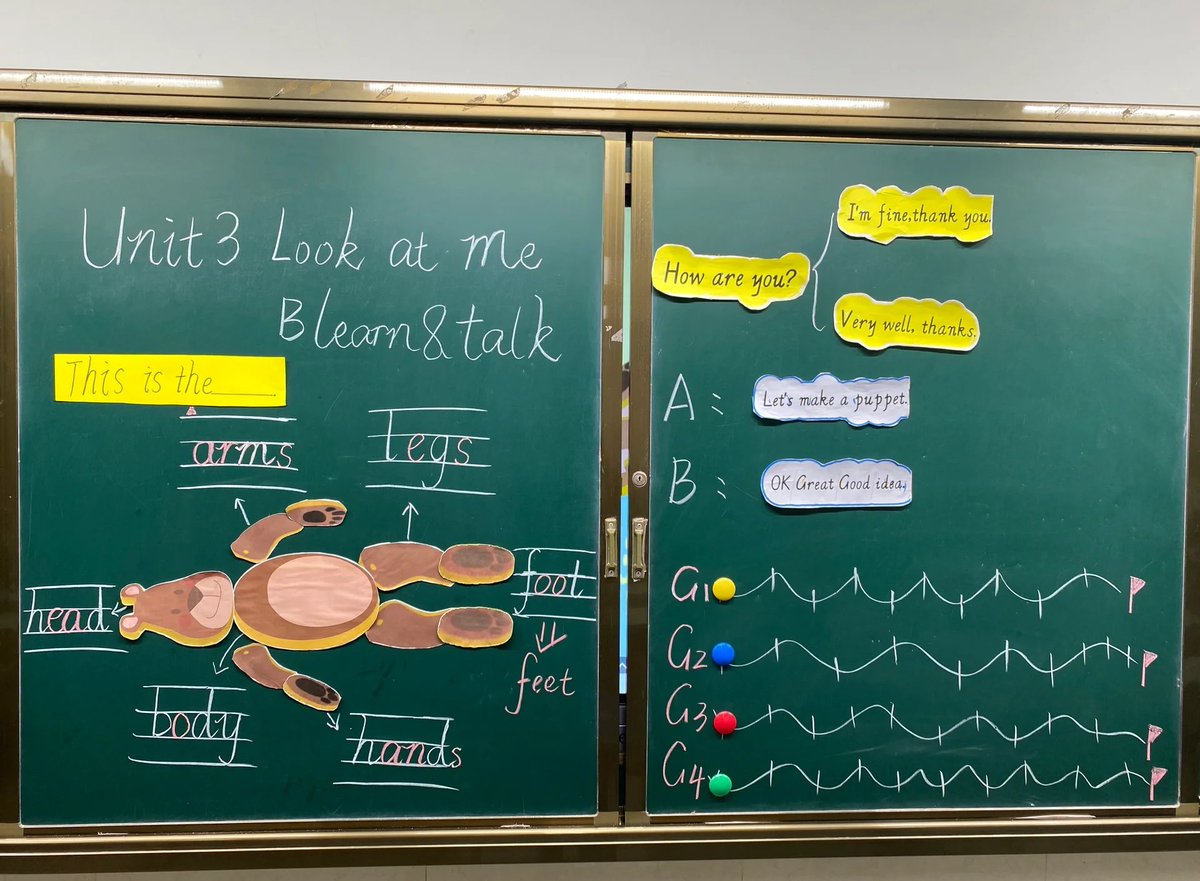 Unit3 Look at me
B learn&talk
This is the______.
arms
legs
head
foot
feet
body
hands
How are you?
I'm fine,thank you.
Very well, thanks.
A: Let's make a puppet.
B: OK Great Good idea.
G1
G2
G3
G4